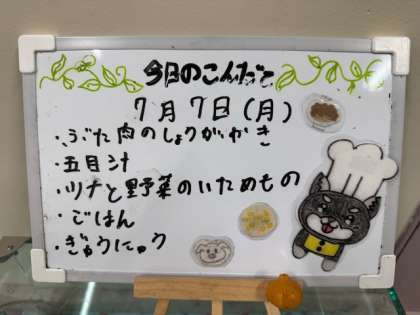 今日のこんだて
7月7日(月)
・ぶた肉のしょうがやき
・五目汁
・ツナと野菜のいためもの
・ごはん
・ぎゅうにゅう